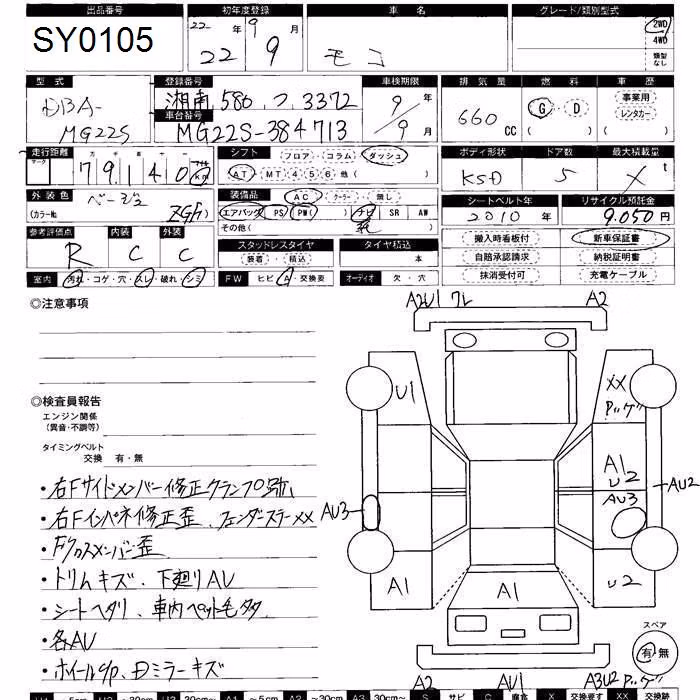 出品番号 初年度登録 車名 グレード/類別型式
SY0105 22年 9月 22 9 モコ 2WD 4WD 類型なし
型式 登録番号 車検期限 排気量 燃料 車歴
DBA- 湘南 580 つ 3372 9年 660cc G・D 事業用 レンタカー
車台番号
MG22S MG22S-384713 9月
走行距離 シフト フロア・コラム・ダッシュ ボディ形状 ドア数 最大積載量
マーク 十 万 千 百 十 マイル km
79140 AT・MT 4 5 6 他( ) 5 X t
外装色 ベージュ 装備品 AC・クーラー・無し シートベルト年 リサイクル預託金
(カラーNo. エアバッグ PS PW( ) ナビ SR AW 2010年 9,050円
その他( )
参考評価点 内装 外装 スタッドレスタイヤ タイヤ積込 搬入時看板付 新車保証書
R C C 装着・積込 本 自賠承認請求 納税証明書
室内 汚れ・コゲ・穴・スレ・破れ・シミ FW ヒビ・A・交換要 オーディオ 欠・穴 抹消受付可 充電ケーブル
◎注意事項
A2U1 ワレ A2
U1 XX Pッゲ
◎検査員報告
エンジン関係
(異音・不調等)
タイミングベルト
交換 有・無
A1 U2
AU3 AU3 AU2
A1 A1 U2
・右Fサイドメンバー修正クランプ跡
・右Fインパネ修正歪、フェンダーステーXX
・Fクロスメンバー歪
・トリムキズ、下廻りAU
・シートヘタリ、車内ペット毛多タ
・各AU
・ホイールc/p、Dミラーキズ
スペア
有・無
A2 AU1 A3U2 Pッゲ
U1 ～5cm U2 ～30cm U3 30cm～ A1 ～5cm A2 ～30cm A3 30cm～ S サビ C 腐食 X 交換要す XX 交換跡